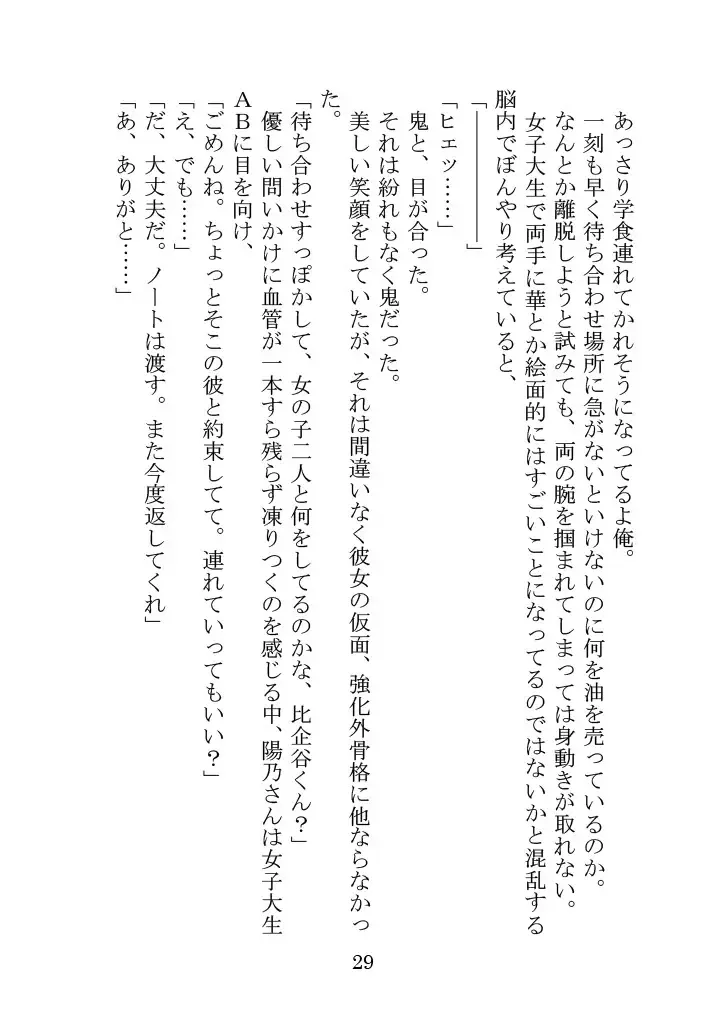 あっさり学食連れてかれそうになってるよ俺。
一刻も早く待ち合わせ場所に急がないといけないのに何を油を売っているのか。
なんとか離脱しようと試みても、両の腕を掴まれてしまっては身動きが取れない。
女子大生で両手に華とか絵面的にはすごいことになってるのではないかと混乱する
脳内でぼんやり考えていると、
「――――――」
「ヒェッ……」
鬼と、目が合った。
それは紛れもなく鬼だった。
美しい笑顔をしていたが、それは間違いなく彼女の仮面、強化外骨格に他ならなかっ
た。
「待ち合わせすっぽかして、女の子二人と何をしてるのかな、比企谷くん？」
優しい問いかけに血管が一本すら残らず凍りつくのを感じる中、陽乃さんは女子大生
ＡＢに目を向け、
「ごめんね。ちょっとそこの彼と約束してて。連れていってもいい？」
「え、でも……」
「だ、大丈夫だ。ノートは渡す。また今度返してくれ」
「あ、ありがと……」
29